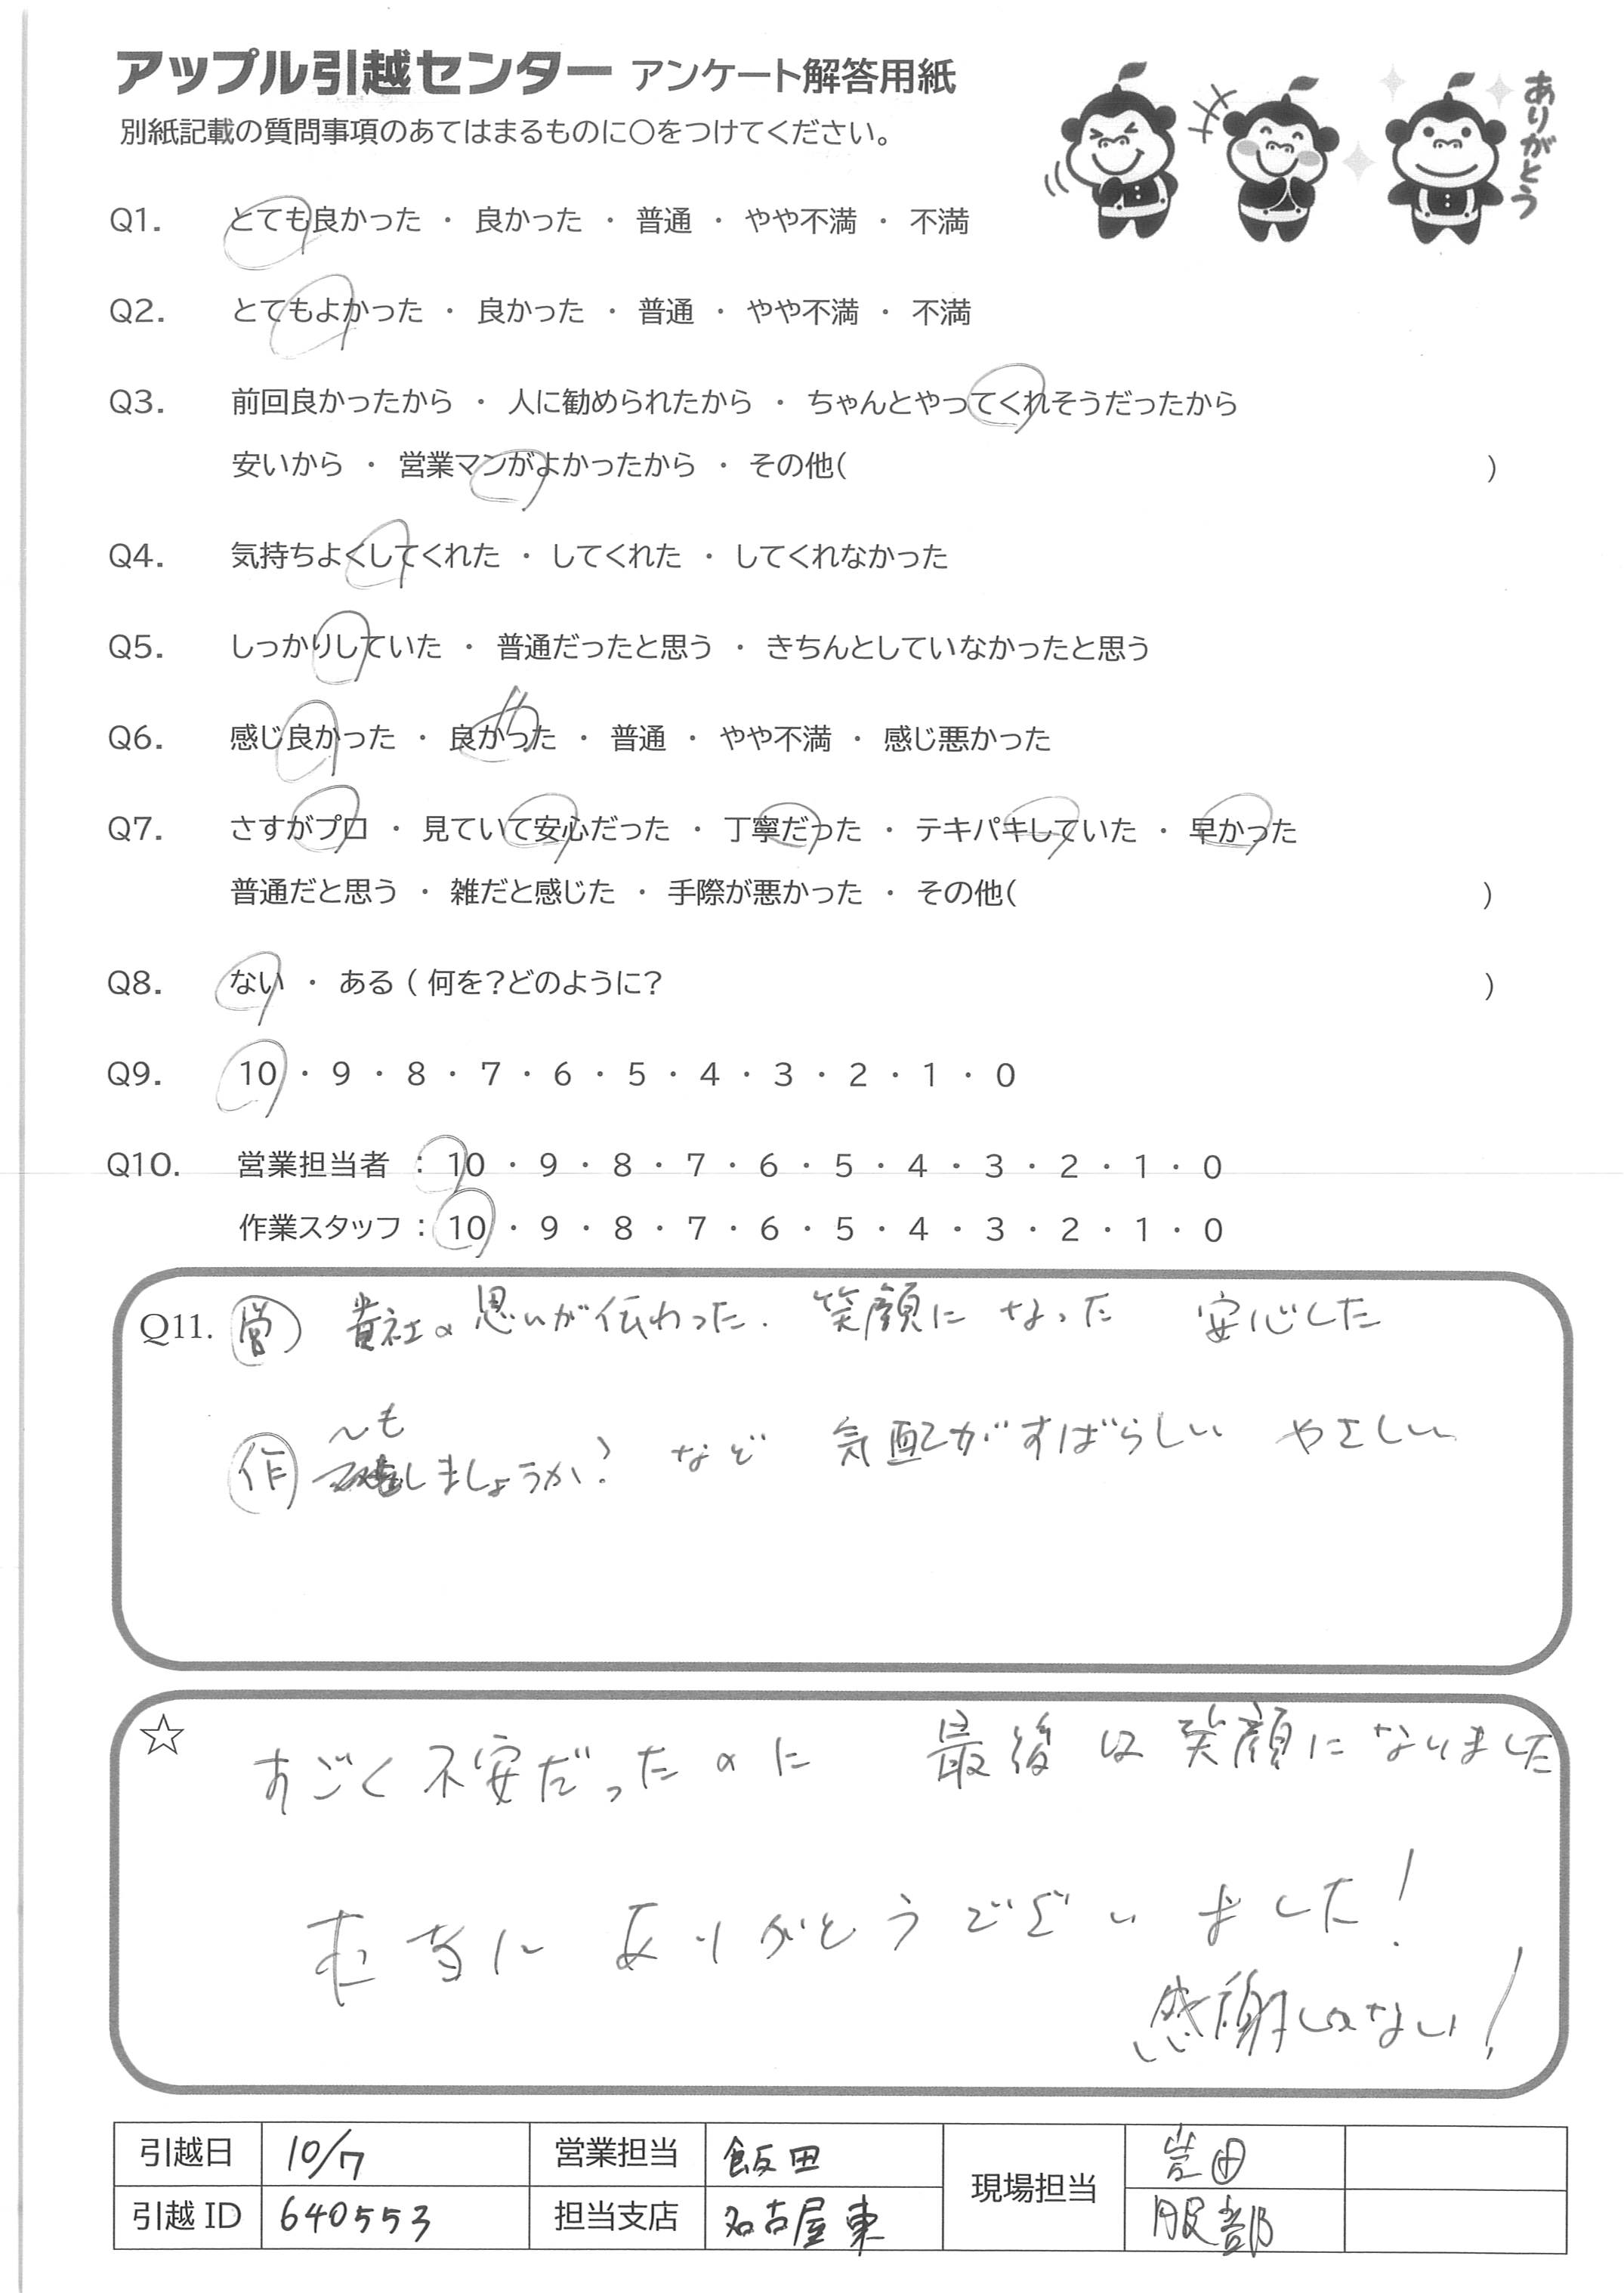 アップル引越センター アンケート解答用紙
ありがとう
別紙記載の質問事項のあてはまるものに○をつけてください。
Q1. とても良かった ・ 良かった ・ 普通 ・ やや不満 ・ 不満
Q2. とてもよかった ・ 良かった ・ 普通 ・ やや不満 ・ 不満
Q3. 前回良かったから ・ 人に勧められたから ・ ちゃんとやってくれそうだったから
安いから ・ 営業マンがよかったから ・ その他( )
Q4. 気持ちよくしてくれた ・ してくれた ・ してくれなかった
Q5. しっかりしていた ・ 普通だったと思う ・ きちんとしていなかったと思う
Q6. 感じ良かった ・ 良かった ・ 普通 ・ やや不満 ・ 感じ悪かった
Q7. さすがプロ ・ 見ていて安心だった ・ 丁寧だった ・ テキパキしていた ・ 早かった
普通だと思う ・ 雑だと感じた ・ 手際が悪かった ・ その他( )
Q8. ない ・ ある ( 何を?どのように? )
Q9. 10 ・ 9 ・ 8 ・ 7 ・ 6 ・ 5 ・ 4 ・ 3 ・ 2 ・ 1 ・ 0
Q10. 営業担当者 : 10 ・ 9 ・ 8 ・ 7 ・ 6 ・ 5 ・ 4 ・ 3 ・ 2 ・ 1 ・ 0
作業スタッフ : 10 ・ 9 ・ 8 ・ 7 ・ 6 ・ 5 ・ 4 ・ 3 ・ 2 ・ 1 ・ 0
Q11. 営 貴社の思いが伝わった. 笑顔に なった 安心した
〜も
作 しましょうか? など 気配がすばらしい やさしい
☆ すごく不安だったのに 最後は笑顔になりました
本当に ありがとうございました!
感謝しかない!
引越日 10/7 営業担当 飯田 現場担当 岩田
引越 ID 640553 担当支店 名古屋東 服部